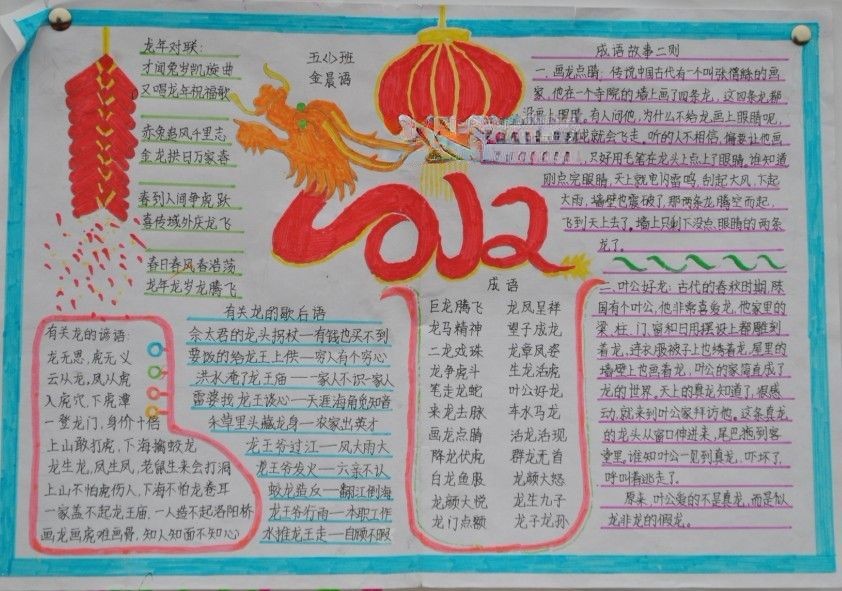 龙年对联:
才闻兔岁凯旋曲
又唱龙年祝福歌
赤兔追风千里志
金龙拱日万家春
春到人间争虎跃
喜传域外庆龙飞
春日春风春浩荡
龙年龙岁龙腾飞
五(3)班
金晨语
2012
成语故事二则
一、画龙点睛: 传说中国古代有一个叫张僧繇的画
家,他在一个寺院的墙上画了四条龙,这四条龙都
没画上眼睛,有人问他,为什么不给龙画上眼睛呢,
就会飞走。听的人不相信,偏要让他画
只好用毛笔在龙头上点上了眼睛。谁知道
刚点完眼睛,天上就电闪雷鸣,刮起大风,下起
大雨,墙壁也震破了,那两条龙腾空而起,
飞到天上去了。墙上只剩下没点眼睛的两条
龙了。
二、叶公好龙: 古代的春秋时期,陈
国有个叶公,他非常喜爱龙,他家里的
梁、柱、门、窗和日用摆设上都雕刻
着龙,连衣服被子上也绣着龙,屋里的
墙壁上也画着龙,叶公的家简直成了
龙的世界。天上的真龙知道了,很感
动,就来到叶公家拜访他。这条真龙
的龙头从窗口伸进来,尾巴拖到客
堂里。谁知叶公一见到真龙,吓坏了,
呼叫着逃走了。
原来,叶公爱的不是真龙,而是似
龙非龙的假龙。
有关龙的谚语:
龙无恩,虎无义
云从龙,风从虎
入虎穴,下虎潭
一登龙门,身价十倍
上山敢打虎,下海擒蛟龙
龙生龙,凤生凤,老鼠生来会打洞
上山不怕虎伤人,下海不怕龙卷耳
一家盖不起龙王庙,一人造不起洛阳桥
画龙画虎难画骨,知人知面不知心
有关龙的歇后语
佘太君的龙头拐杖—有钱也买不到
要饭的给龙王上供—穷人有个穷心
洪水淹了龙王庙—一家人不识一家人
雷婆找龙王谈心—天涯海角觅知音
朱草里头藏龙身—农家出英才
龙王爷过江—风大雨大
龙王爷发火—六亲不认
蛟龙造反—翻江倒海
龙王爷行雨—本职工作
水推龙王走—自顾不暇
成语
巨龙腾飞 龙凤呈祥
龙马精神 望子成龙
二龙戏珠 龙章凤姿
龙争虎斗 生龙活虎
笔走龙蛇 叶公好龙
来龙去脉 车水马龙
画龙点睛 活龙活现
降龙伏虎 群龙无首
白龙鱼服 龙颜大怒
龙颜大悦 龙生九子
龙门点额 龙子龙孙